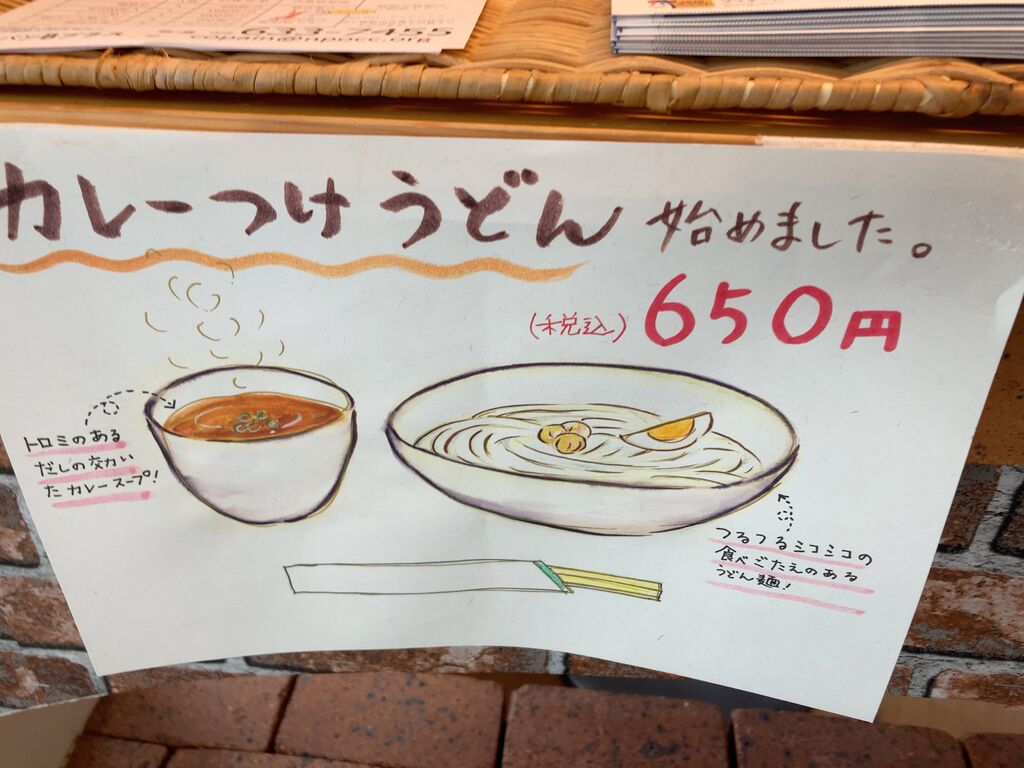 633 7455
カレーつけうどん 始めました。
(税込) 650円
トロミのある
だしの効い
たカレースープ!
つるつるシコシコの
食べごたえのある
うどん麺!